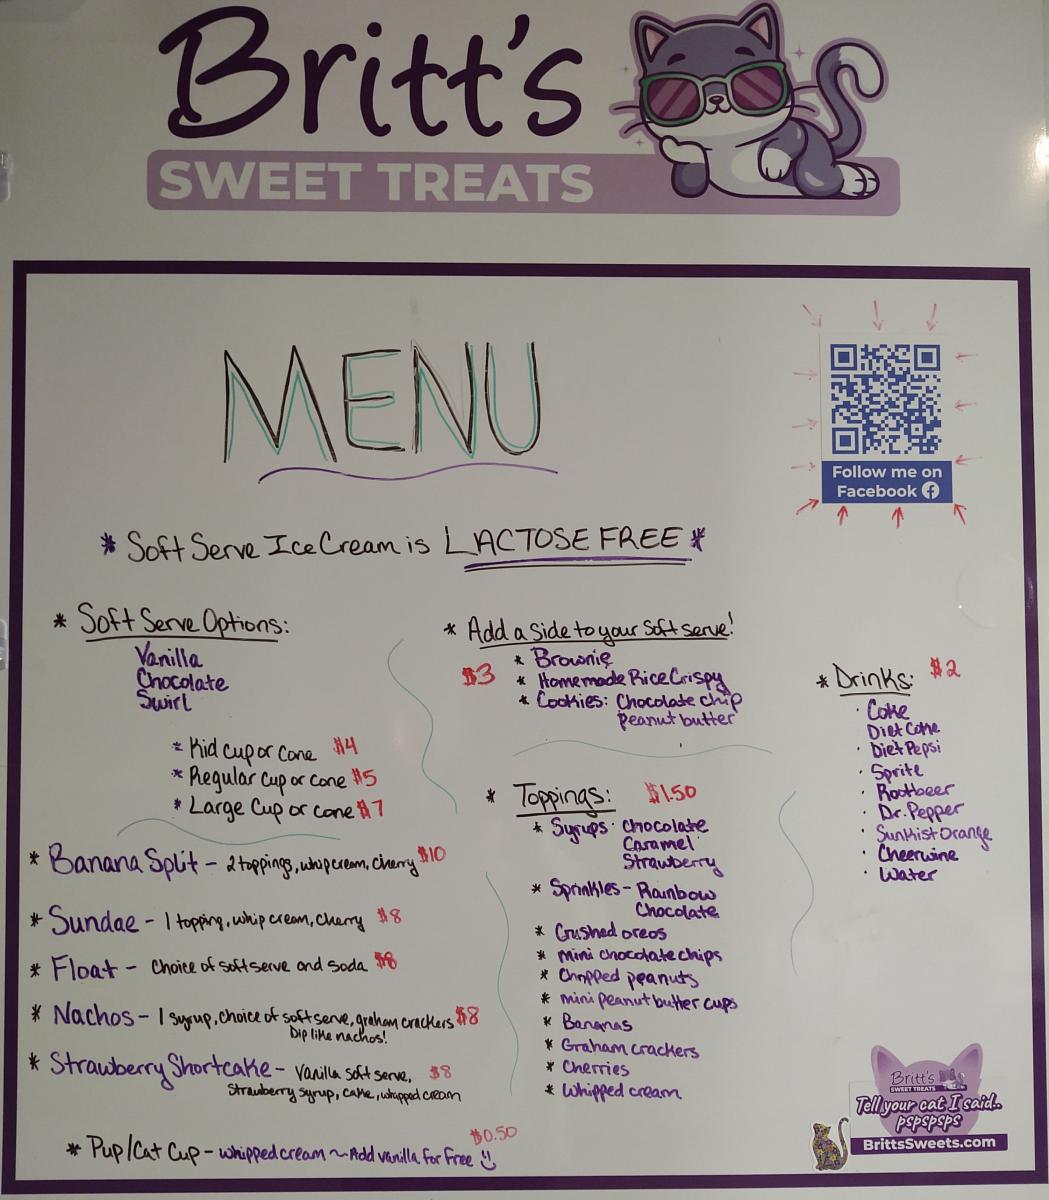 Britt's
SWEET TREATS
MENU
Follow me on
Facebook
* Soft Serve Ice Cream is LACTOSE FREE *
* Soft Serve Options:
Vanilla
Chocolate
Swirl
* Kid cup or cone $4
* Regular cup or cone $5
* Large cup or cone $7
* Banana Split - 2 toppings, whip cream, cherry $10
* Sundae - 1 topping, whip cream, cherry $8
* Float - Choice of soft serve and soda $8
* Nachos - 1 syrup, choice of soft serve, graham crackers $8
Dip like nachos!
* Strawberry Shortcake - Vanilla soft serve, $8
Strawberry syrup, cake, whipped cream
* Pup/Cat Cup - whipped cream ~ Add vanilla for free $0.50
* Add a side to your soft serve!
$3 * Brownie
* Homemade Rice Crispy
* Cookies: Chocolate chip
peanut butter
* Toppings: $1.50
* Syrups: Chocolate
Caramel
Strawberry
* Sprinkles - Rainbow
Chocolate
* Crushed oreos
* mini chocolate chips
* Chopped peanuts
* mini peanut butter cups
* Bananas
* Graham crackers
* Cherries
* Whipped cream
* Drinks: $2
· Coke
Diet Coke
· Diet Pepsi
· Sprite
· Rootbeer
· Dr. Pepper
· Sunkist Orange
· Cheerwine
· Water
Britt's
SWEET TREATS
Tell your cat I said..
pspspsps
BrittsSweets.com